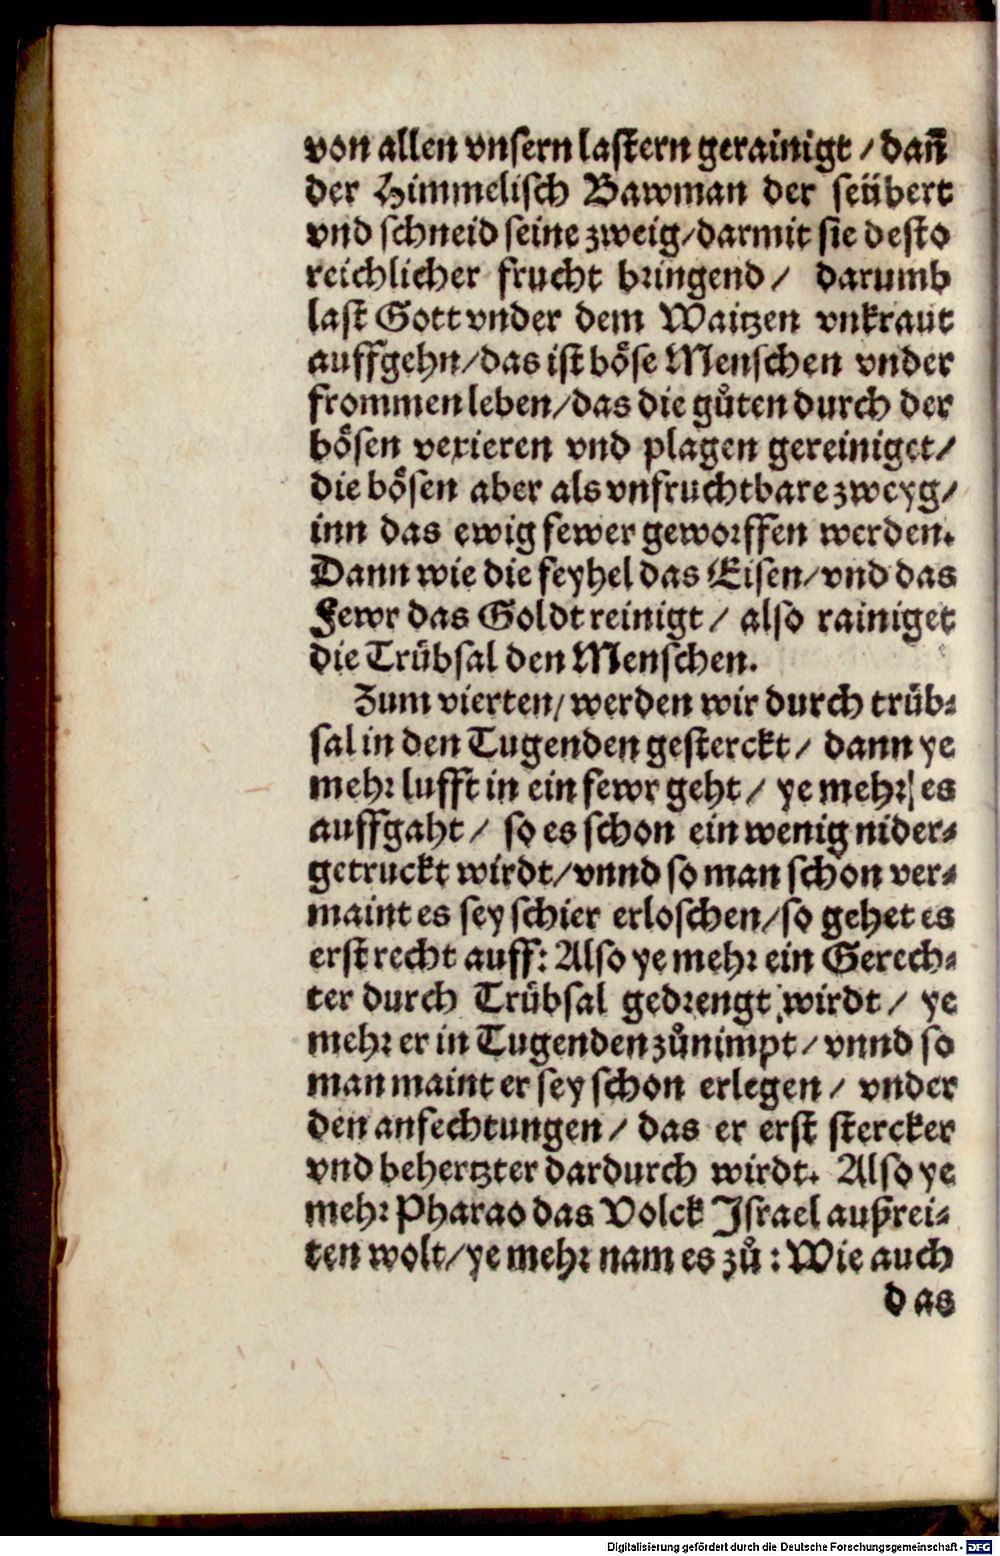 von allen vnsern lastern gerainigt / dañ
der Himmelisch Bawman der seübert
vnd schneid seine zweig/darmit sie desto
reichlicher frucht bringend / darumb
last Gott vnder dem Waitzen vnkraut
auffgehn/das ist böse Menschen vnder
frommen leben/das die gůten durch der
bösen vexieren vnd plagen gereiniget/
die bösen aber als vnfruchtbare zweyg/
inn das ewig fewer geworffen werden.
Dann wie die feyhel das Eisen/vnd das
Fewr das Goldt reinigt / also rainiget
die Trübsal den Menschen.
Zum vierten/werden wir durch trüb-
sal in den Tugenden gesterckt / dann ye
mehr lufft in ein fewr geht / ye mehr es
auffgaht / so es schon ein wenig nider-
getruckt wirdt/vnnd so man schon ver-
maint es sey schier erloschen/so gehet es
erst recht auff: Also ye mehr ein Gerech-
ter durch Trübsal gedrengt wirdt / ye
mehr er in Tugenden zůnimpt / vnnd so
man maint er sey schon erlegen / vnder
den anfechtungen / das er erst stercker
vnd behertzter dardurch wirdt. Also ye
mehr Pharao das Volck Israel außrei-
ten wolt/ye mehr nam es zů: Wie auch
das
Digitalisierung gefördert durch die Deutsche Forschungsgemeinschaft - DFG